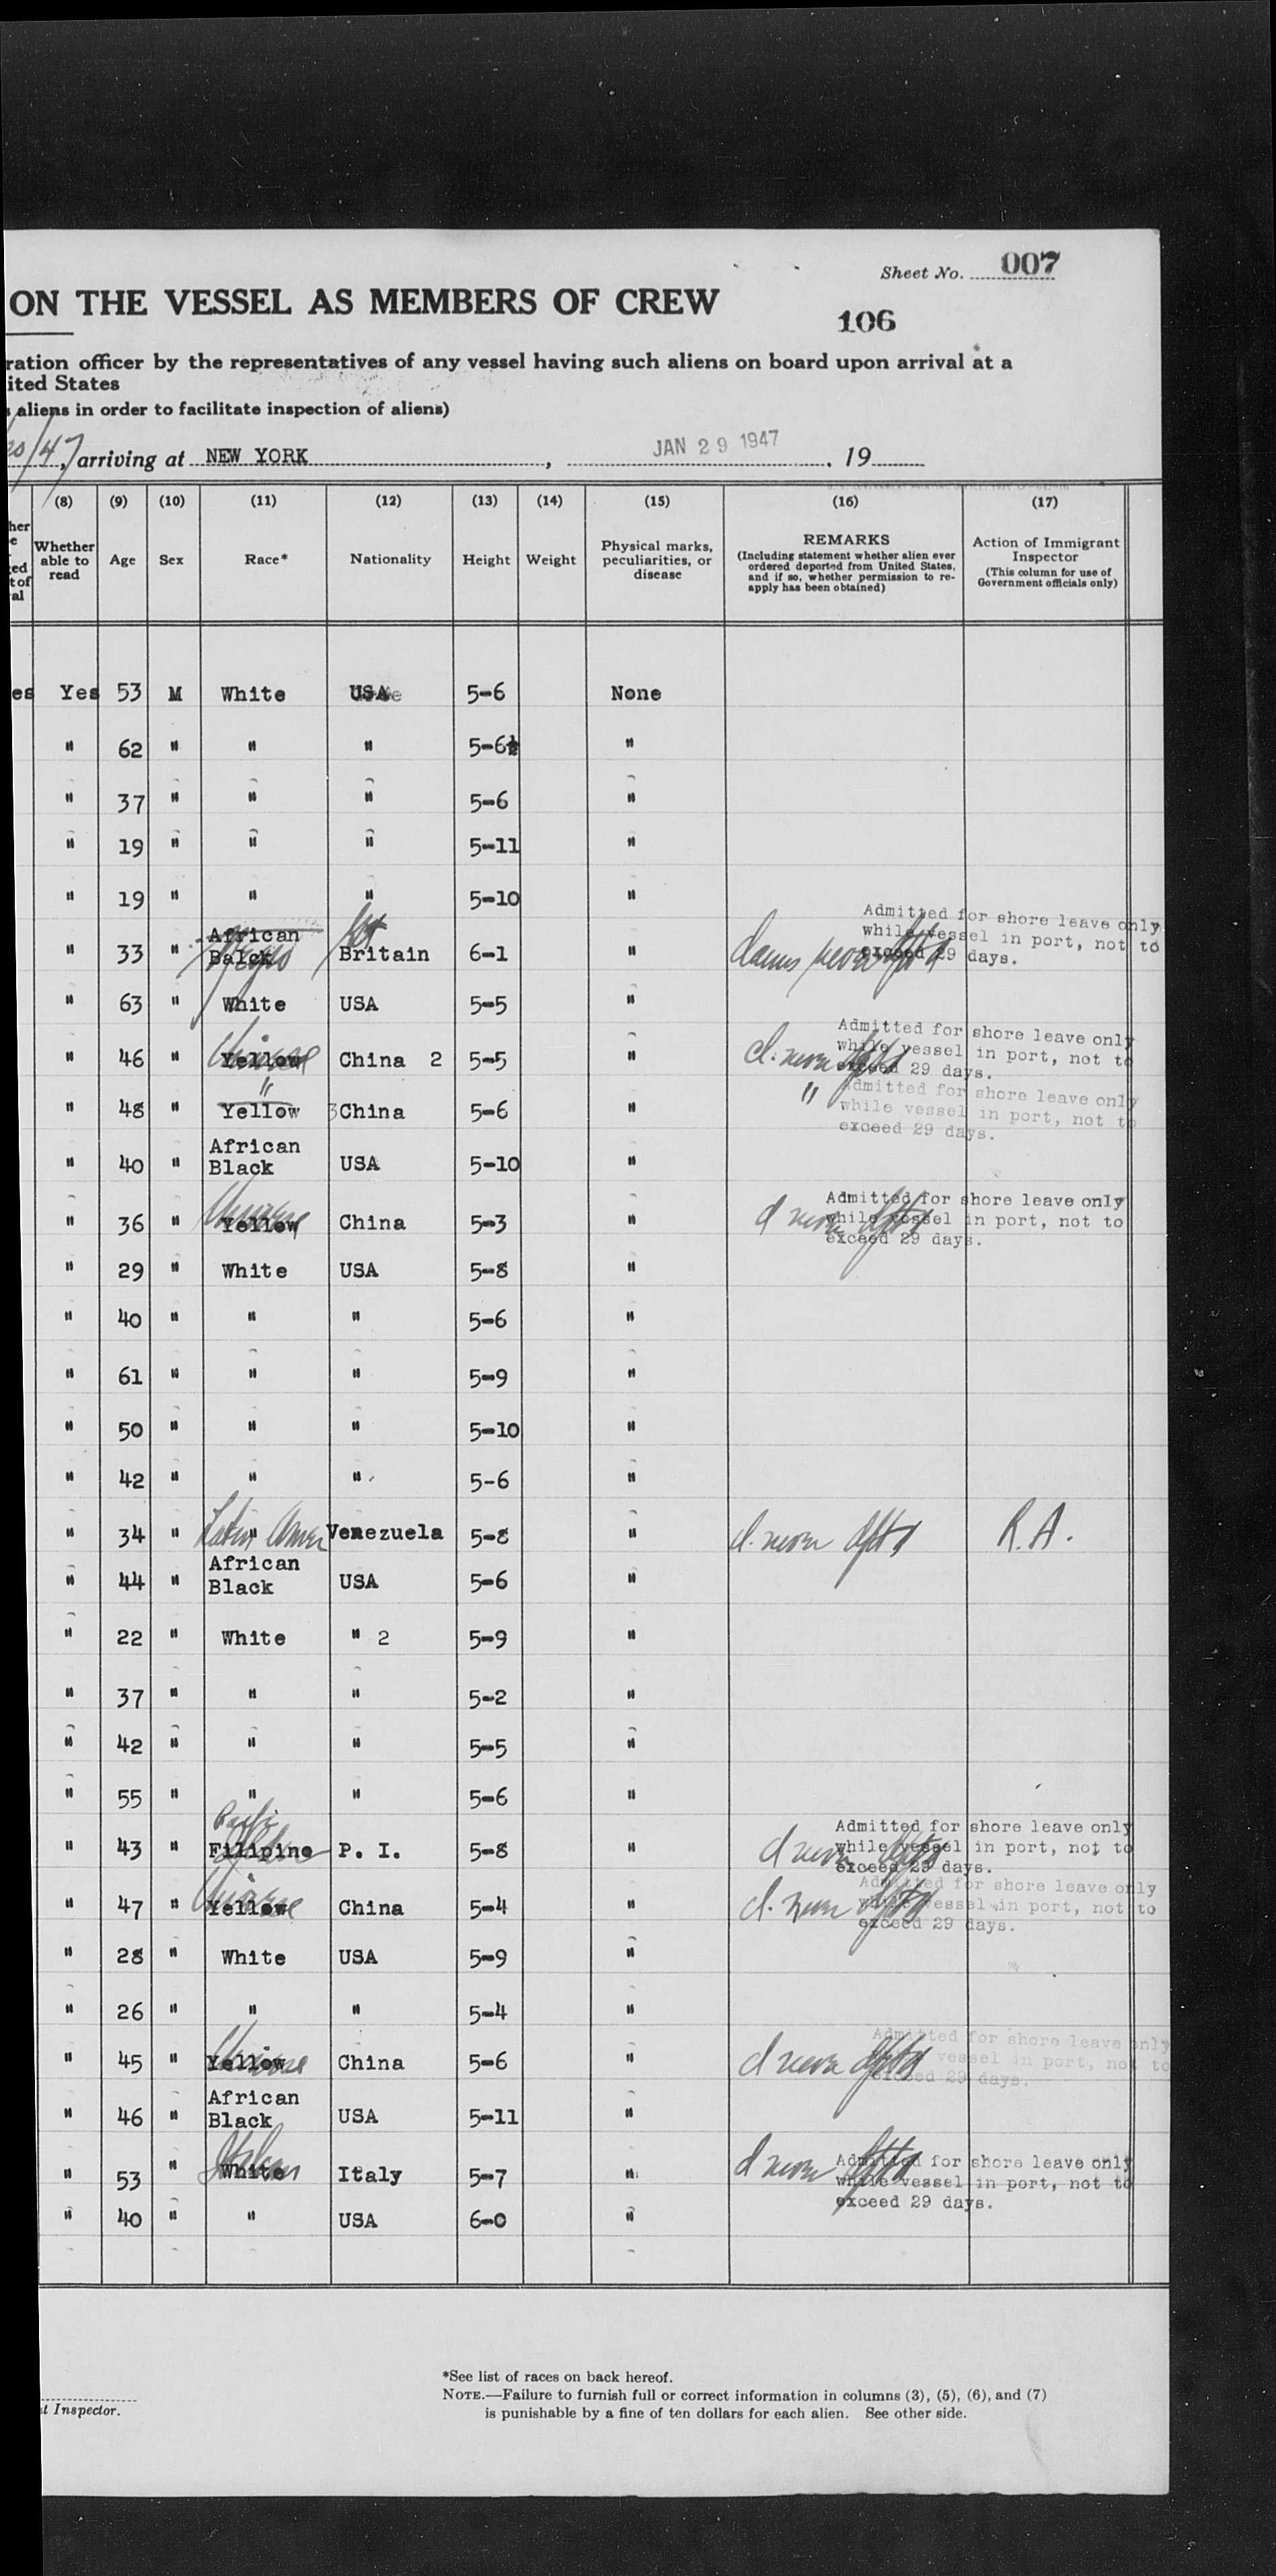 Sheet No. 007
ON THE VESSEL AS MEMBERS OF CREW
106
ration officer by the representatives of any vessel having such aliens on board upon arrival at a
ited States
aliens in order to facilitate inspection of aliens)
20/47, arriving at NEW YORK, JAN 29 1947, 19
(8) (9) (10) (11) (12) (13) (14) (15) (16) (17)
Whether able to read Age Sex Race* Nationality Height Weight Physical marks, peculiarities, or disease REMARKS (Including statement whether alien ever ordered deported from United States, and if so, whether permission to re-apply has been obtained) Action of Immigrant Inspector (This column for use of Government officials only)
es Yes 53 M White USA 5-6 None
" 62 " " " 5-6½ "
" 37 " " " 5-6 "
" 19 " " " 5-11 "
" 19 " " " 5-10 "
" 33 " African Balck Negro Britain 6-1 " never Admitted for shore leave only while vessel in port, not to exceed 29 days.
" 63 " White USA 5-5 "
" 46 " Yellow Chinese China 2 5-5 " Admitted for shore leave only while vessel in port, not to exceed 29 days.
" 48 " Yellow " 3China 5-6 " " Admitted for shore leave only while vessel in port, not to exceed 29 days.
" 40 " African Black USA 5-10 "
" 36 " Yellow Chinese China 5-3 " Admitted for shore leave only while vessel in port, not to exceed 29 days.
" 29 " White USA 5-8 "
" 40 " " " 5-6 "
" 61 " " " 5-9 "
" 50 " " " 5-10 "
" 42 " " " 5-6 "
" 34 " " Latin Amer Venezuela 5-8 " R.A.
" 44 " African Black USA 5-6 "
" 22 " White " 2 5-9 "
" 37 " " " 5-2 "
" 42 " " " 5-5 "
" 55 " " " 5-6 "
" 43 " Filipino P. I. 5-8 " Admitted for shore leave only while vessel in port, not to exceed 29 days.
" 47 " Yellow Chinese China 5-4 " Admitted for shore leave only while vessel in port, not to exceed 29 days.
" 28 " White USA 5-9 "
" 26 " " " 5-4 "
" 45 " Yellow Chinese China 5-6 " Admitted for shore leave only vessel in port, not to exceed 29 days.
" 46 " African Black USA 5-11 "
" 53 " White Italian Italy 5-7 " Admitted for shore leave only while vessel in port, not to exceed 29 days.
" 40 " " USA 6-0 "
*See list of races on back hereof.
NOTE.—Failure to furnish full or correct information in columns (3), (5), (6), and (7)
is punishable by a fine of ten dollars for each alien. See other side.
t Inspector.